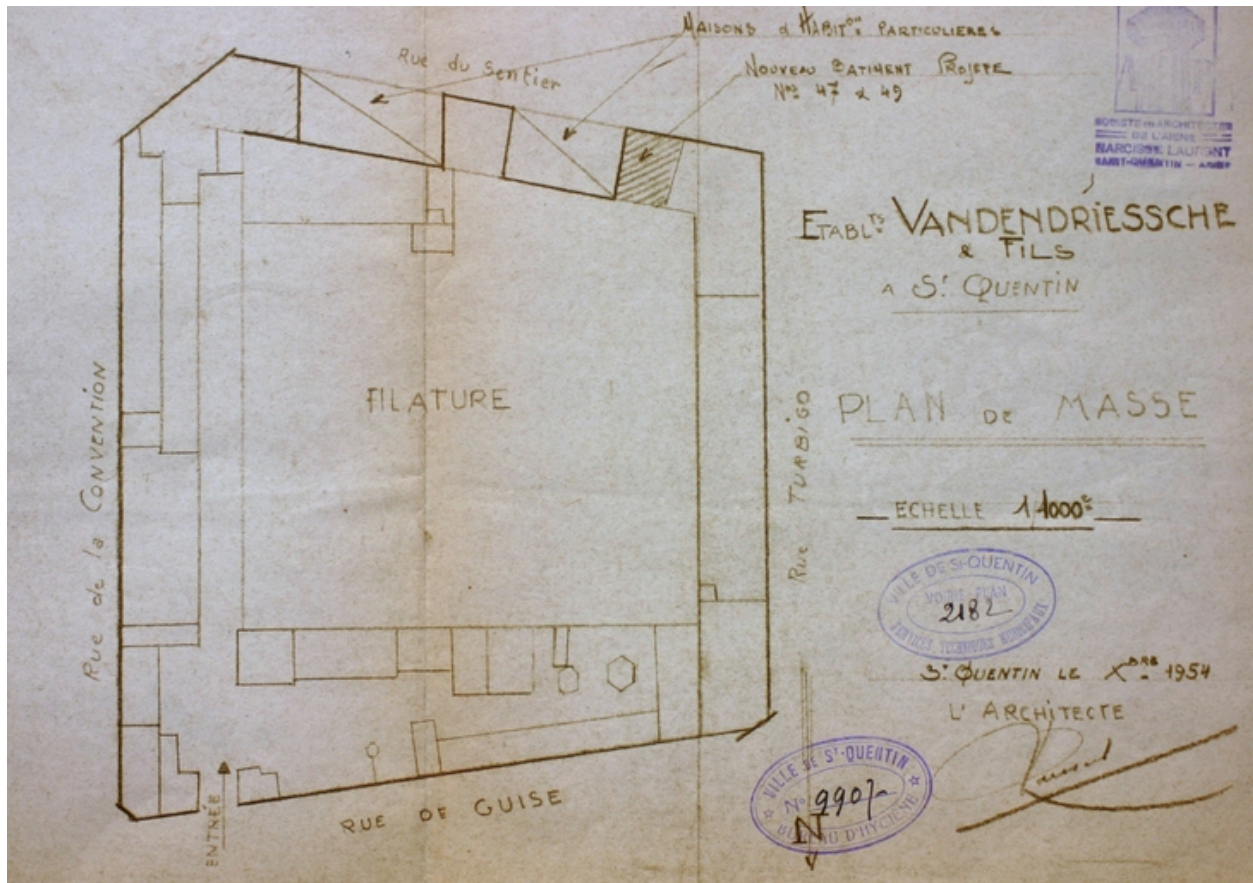 MAISONS d'HABITON PARTICULIERES
Rue du Sentier
NOUVEAU BATIMENT PROJETE
Nos 47 & 49
SOCIETE DES ARCHITECTES
DE L'AISNE
NARCISSE LAURENT
SAINT-QUENTIN — AISNE
ETABLTS VANDENDRIESSCHE
& FILS
A ST QUENTIN
FILATURE
PLAN DE MASSE
Rue de la CONVENTION
Rue TURBIGO
ECHELLE 1/1000e
VILLE DE St-QUENTIN
VOIRIE PLAN
2182
SERVICES TECHNIQUES MUNICIPAUX
ST QUENTIN LE XBRE 1954
L'ARCHITECTE
VILLE DE St-QUENTIN
No 9907
BUREAU D'HYGIENE
N
ENTRÉE
RUE DE GUISE